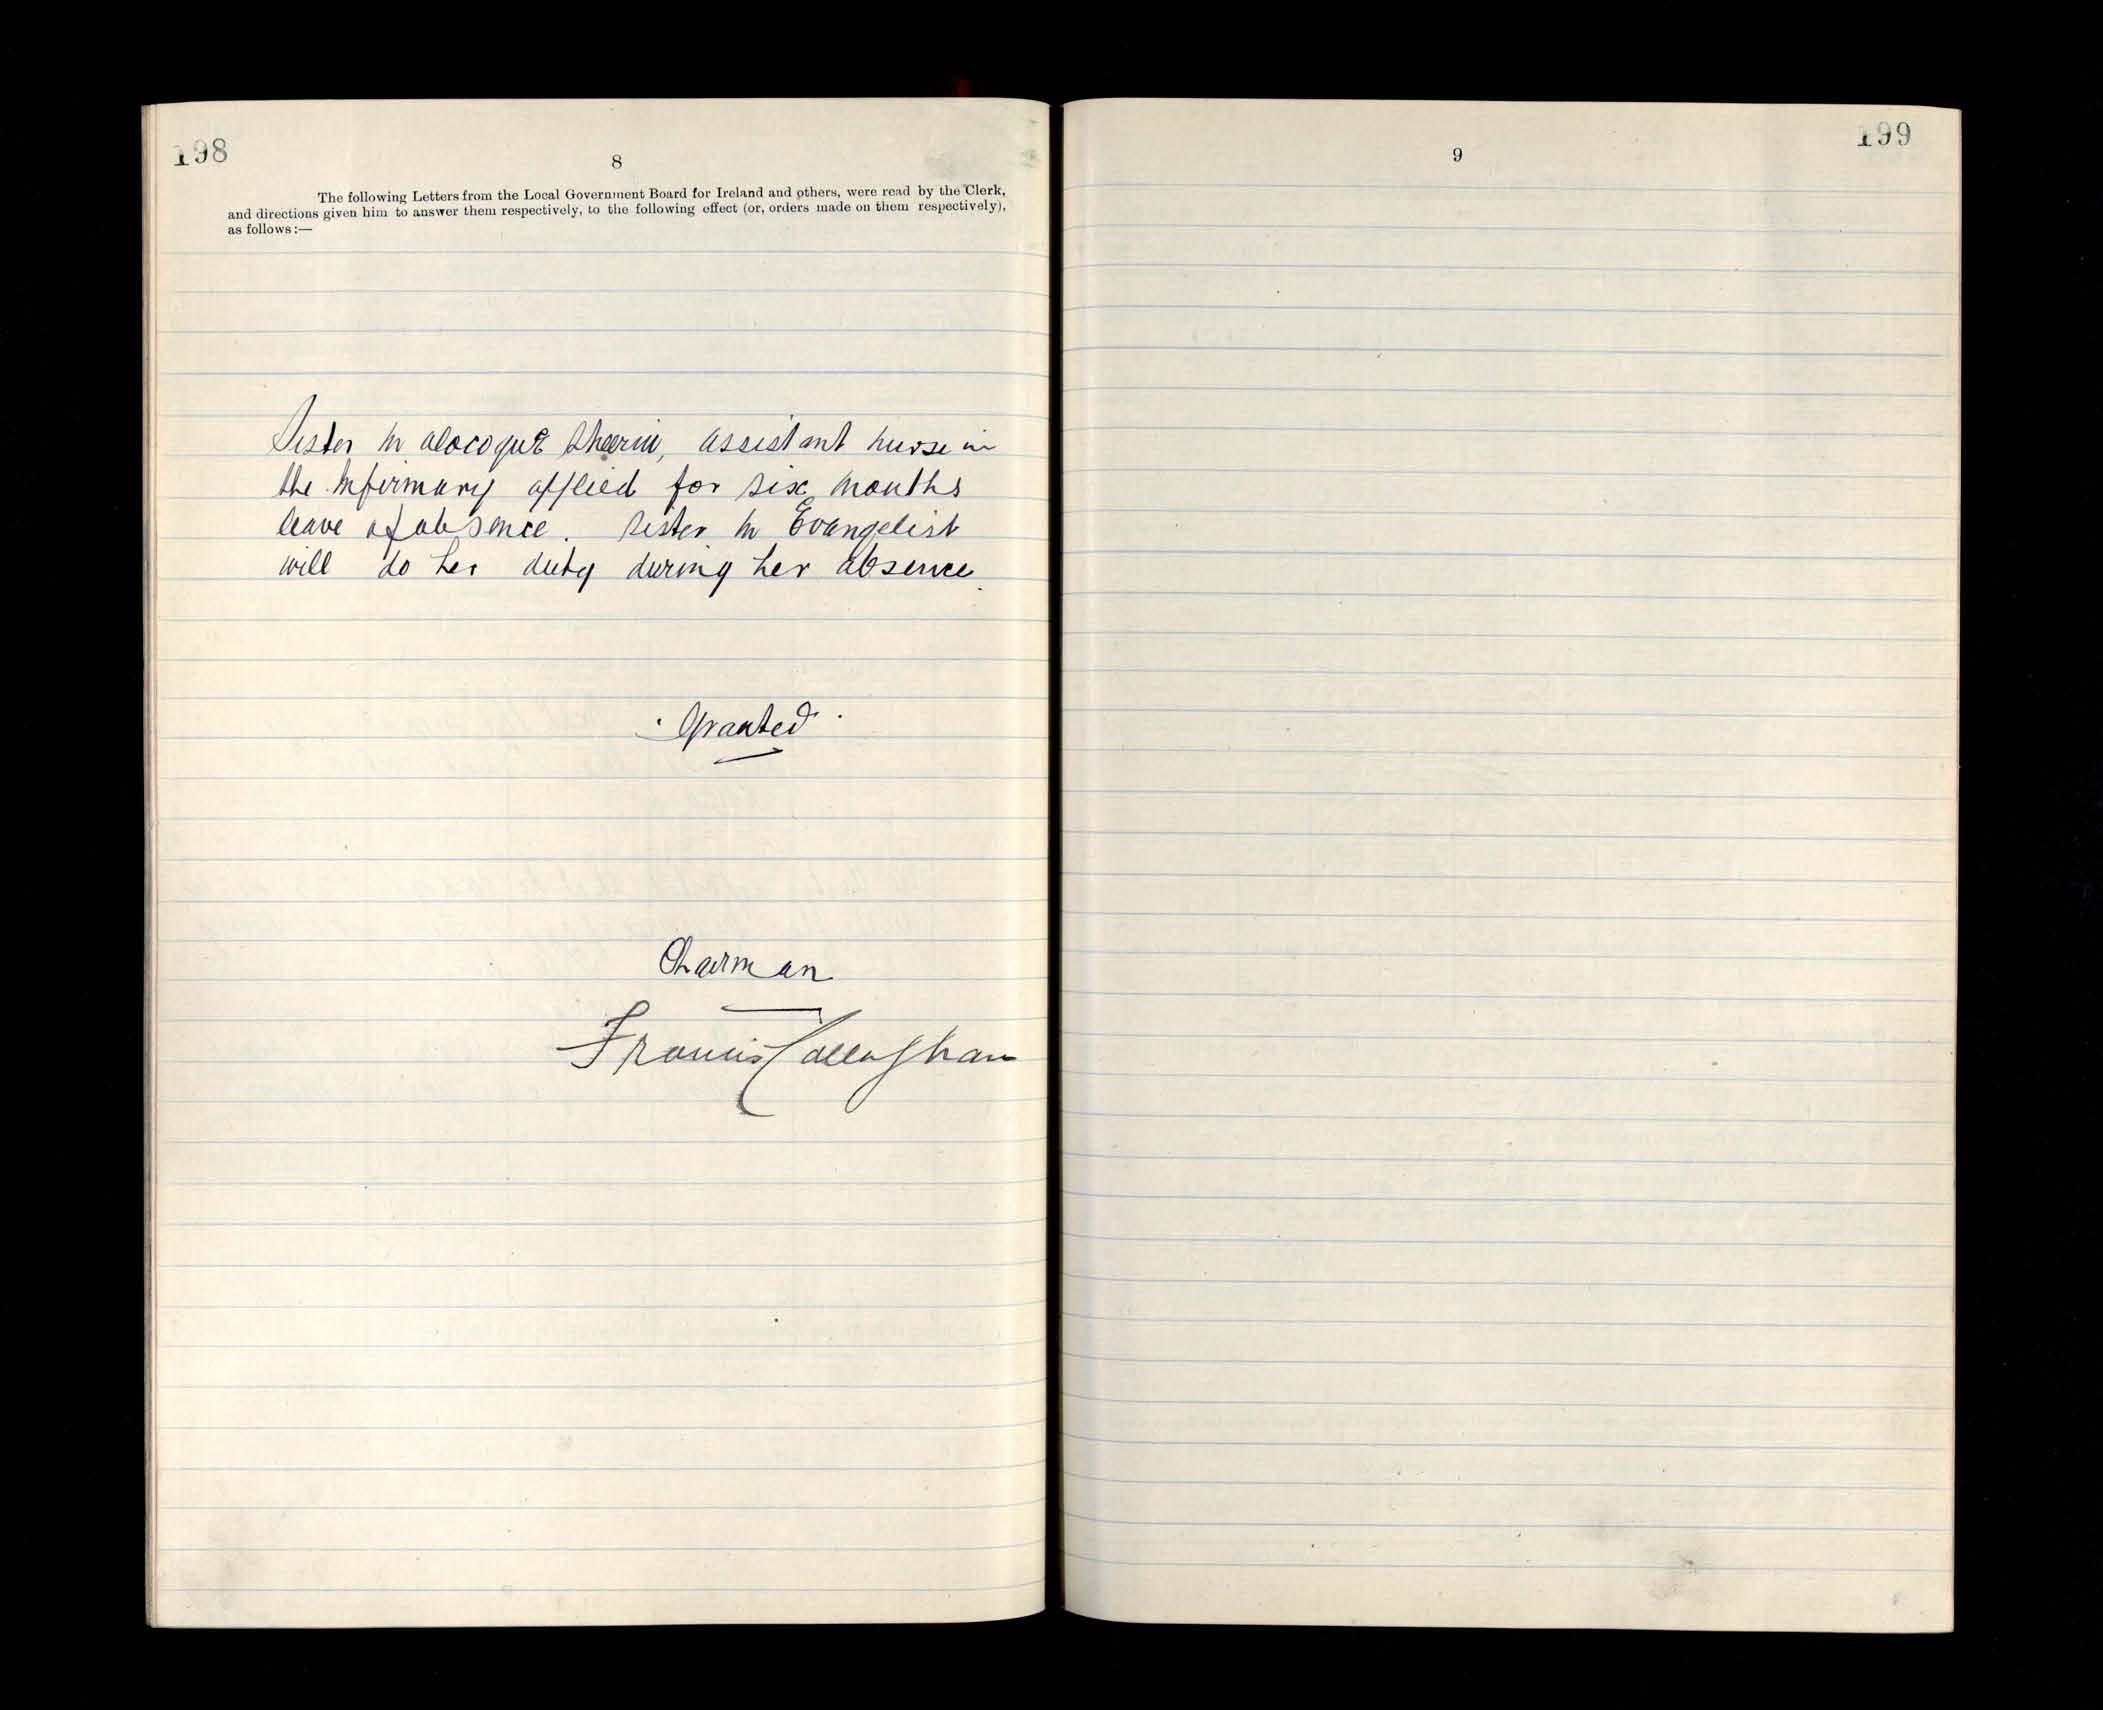 198
8
The following Letters from the Local Government Board for Ireland and others, were read by the Clerk,
and directions given him to answer them respectively, to the following effect (or, orders made on them respectively),
as follows:—
Sister M Alocoque Sheerin, assistant nurse in
the Infirmary applied for six months
leave of absence. Sister M Evangelist
will do her duty during her absence.
Granted
Chairman
Francis Callaghan
9
199